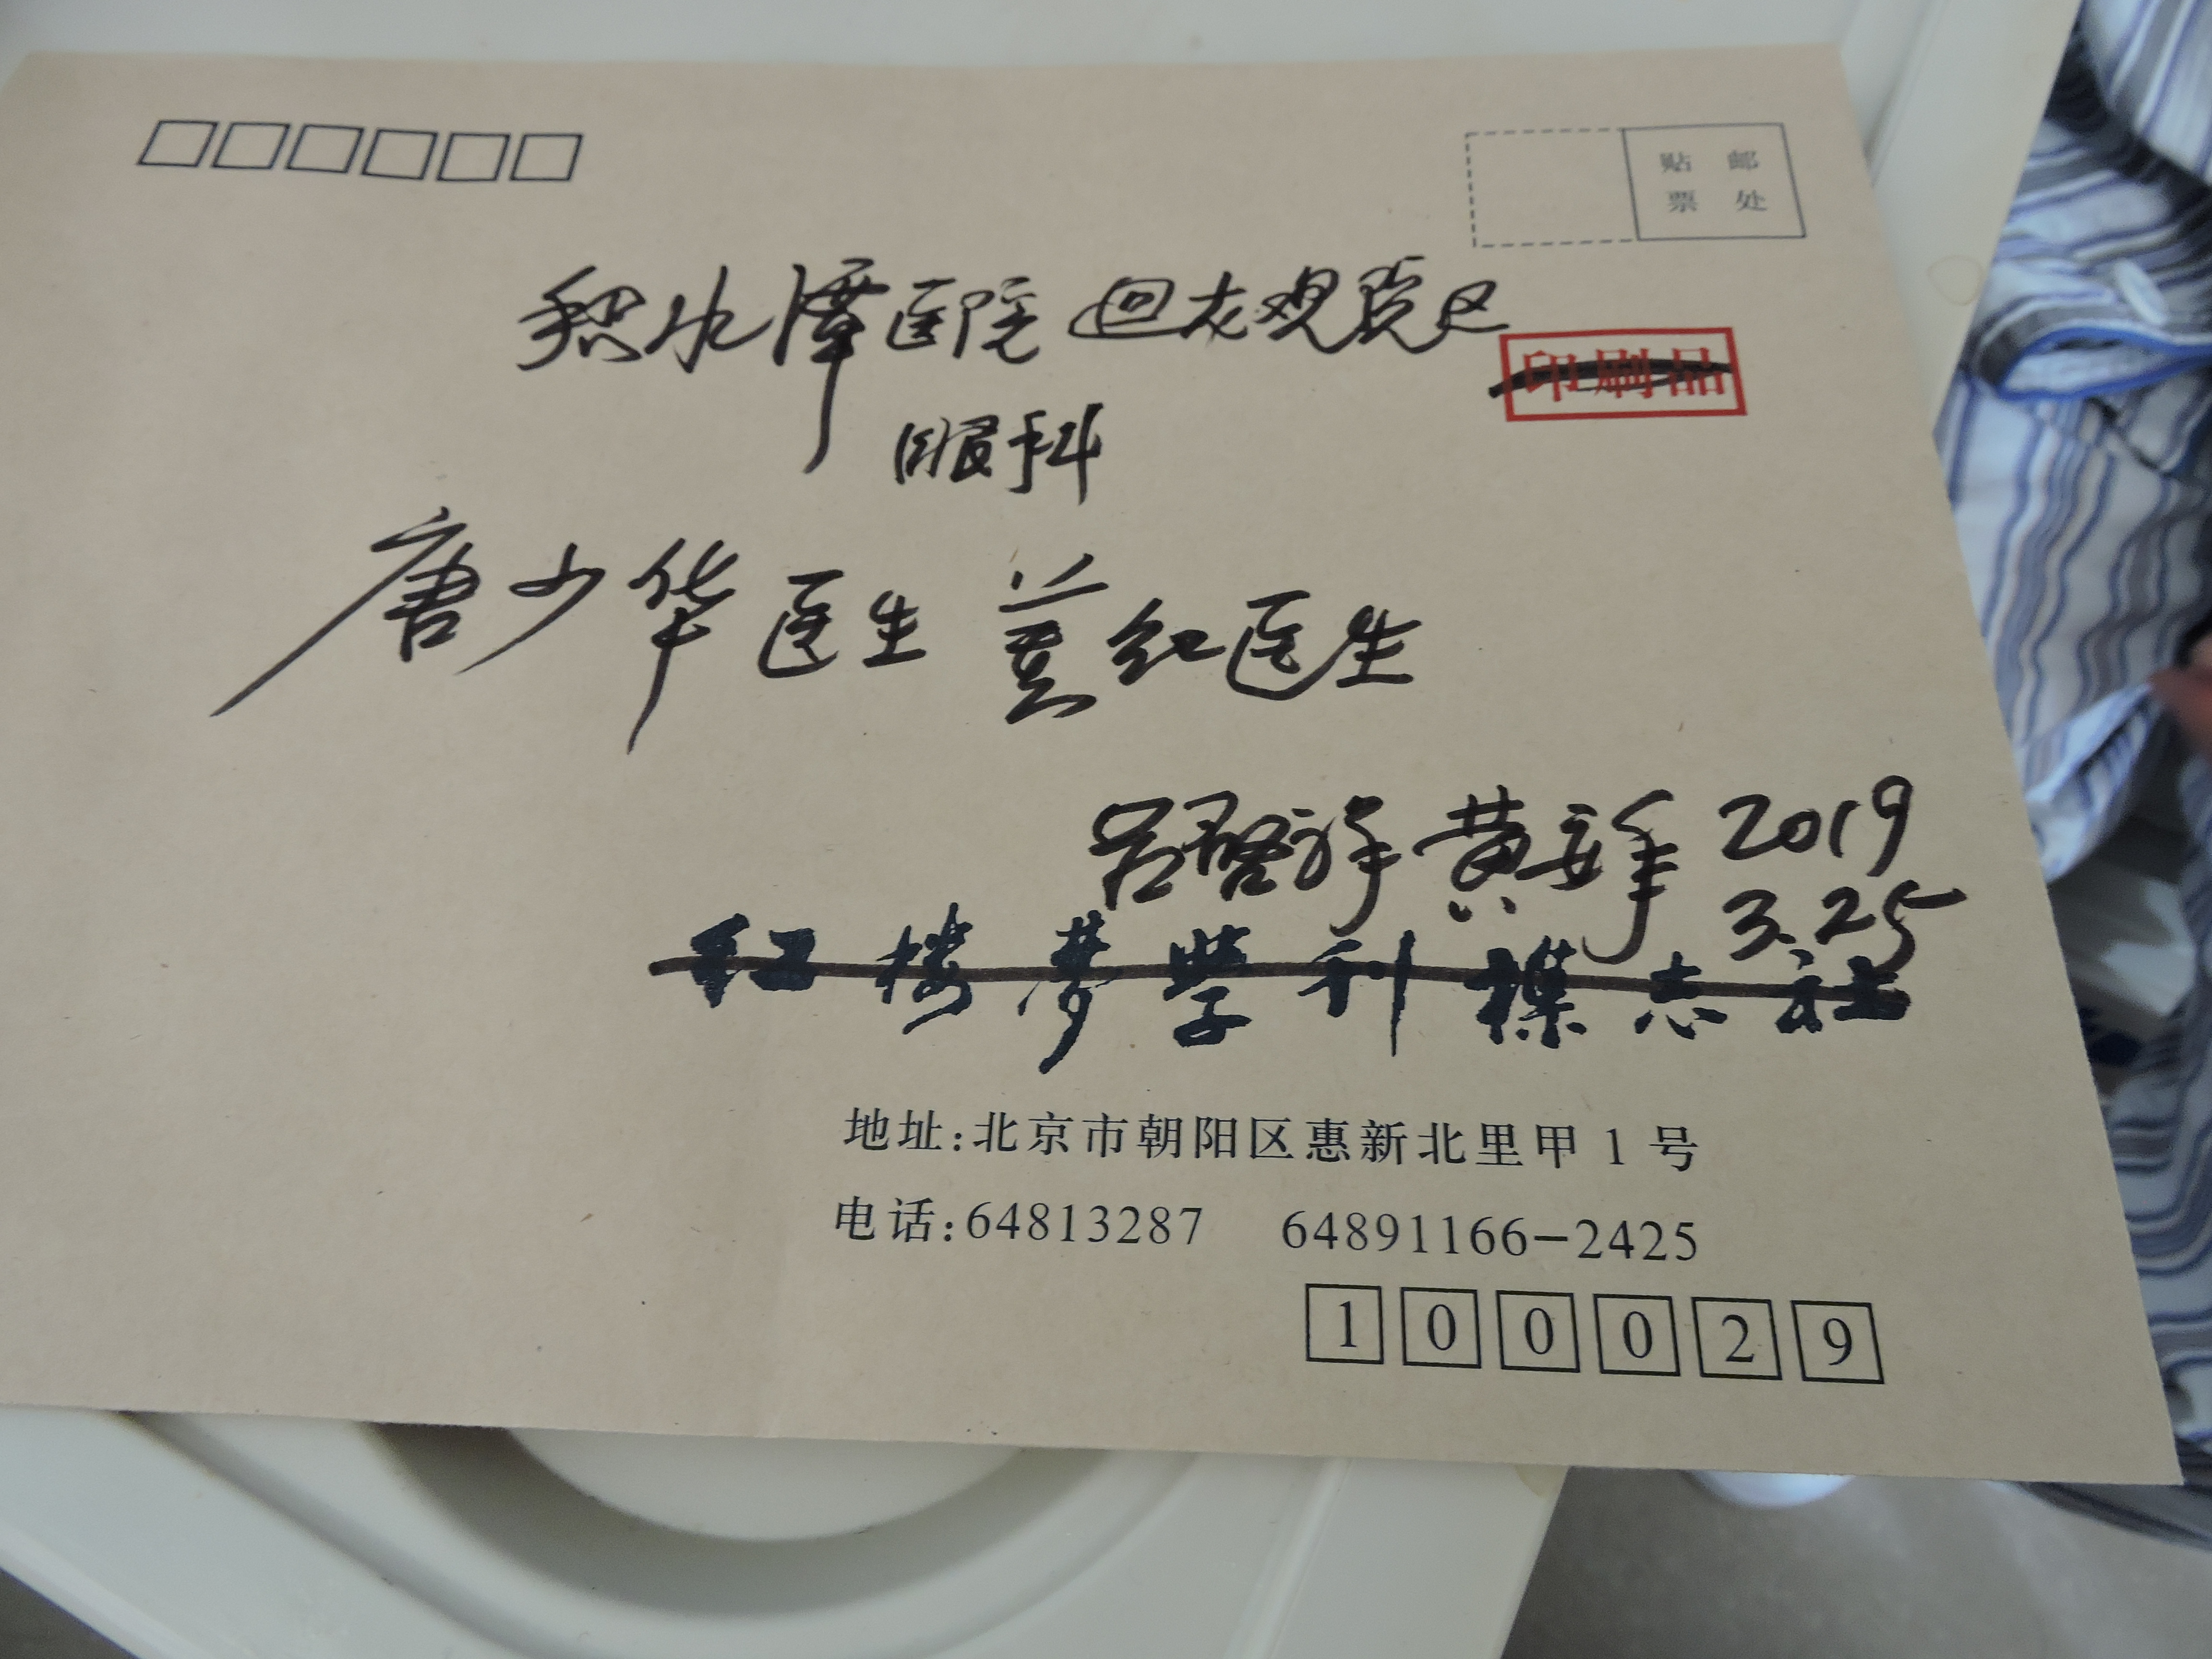 贴邮
票处
积水潭医院 回龙观院区
印刷品
眼科
唐少华医生 姜红医生
吕启祥 黄安年 2019
3.25
红楼梦学刊杂志社
地址:北京市朝阳区惠新北里甲1号
电话:64813287 64891166-2425
100029